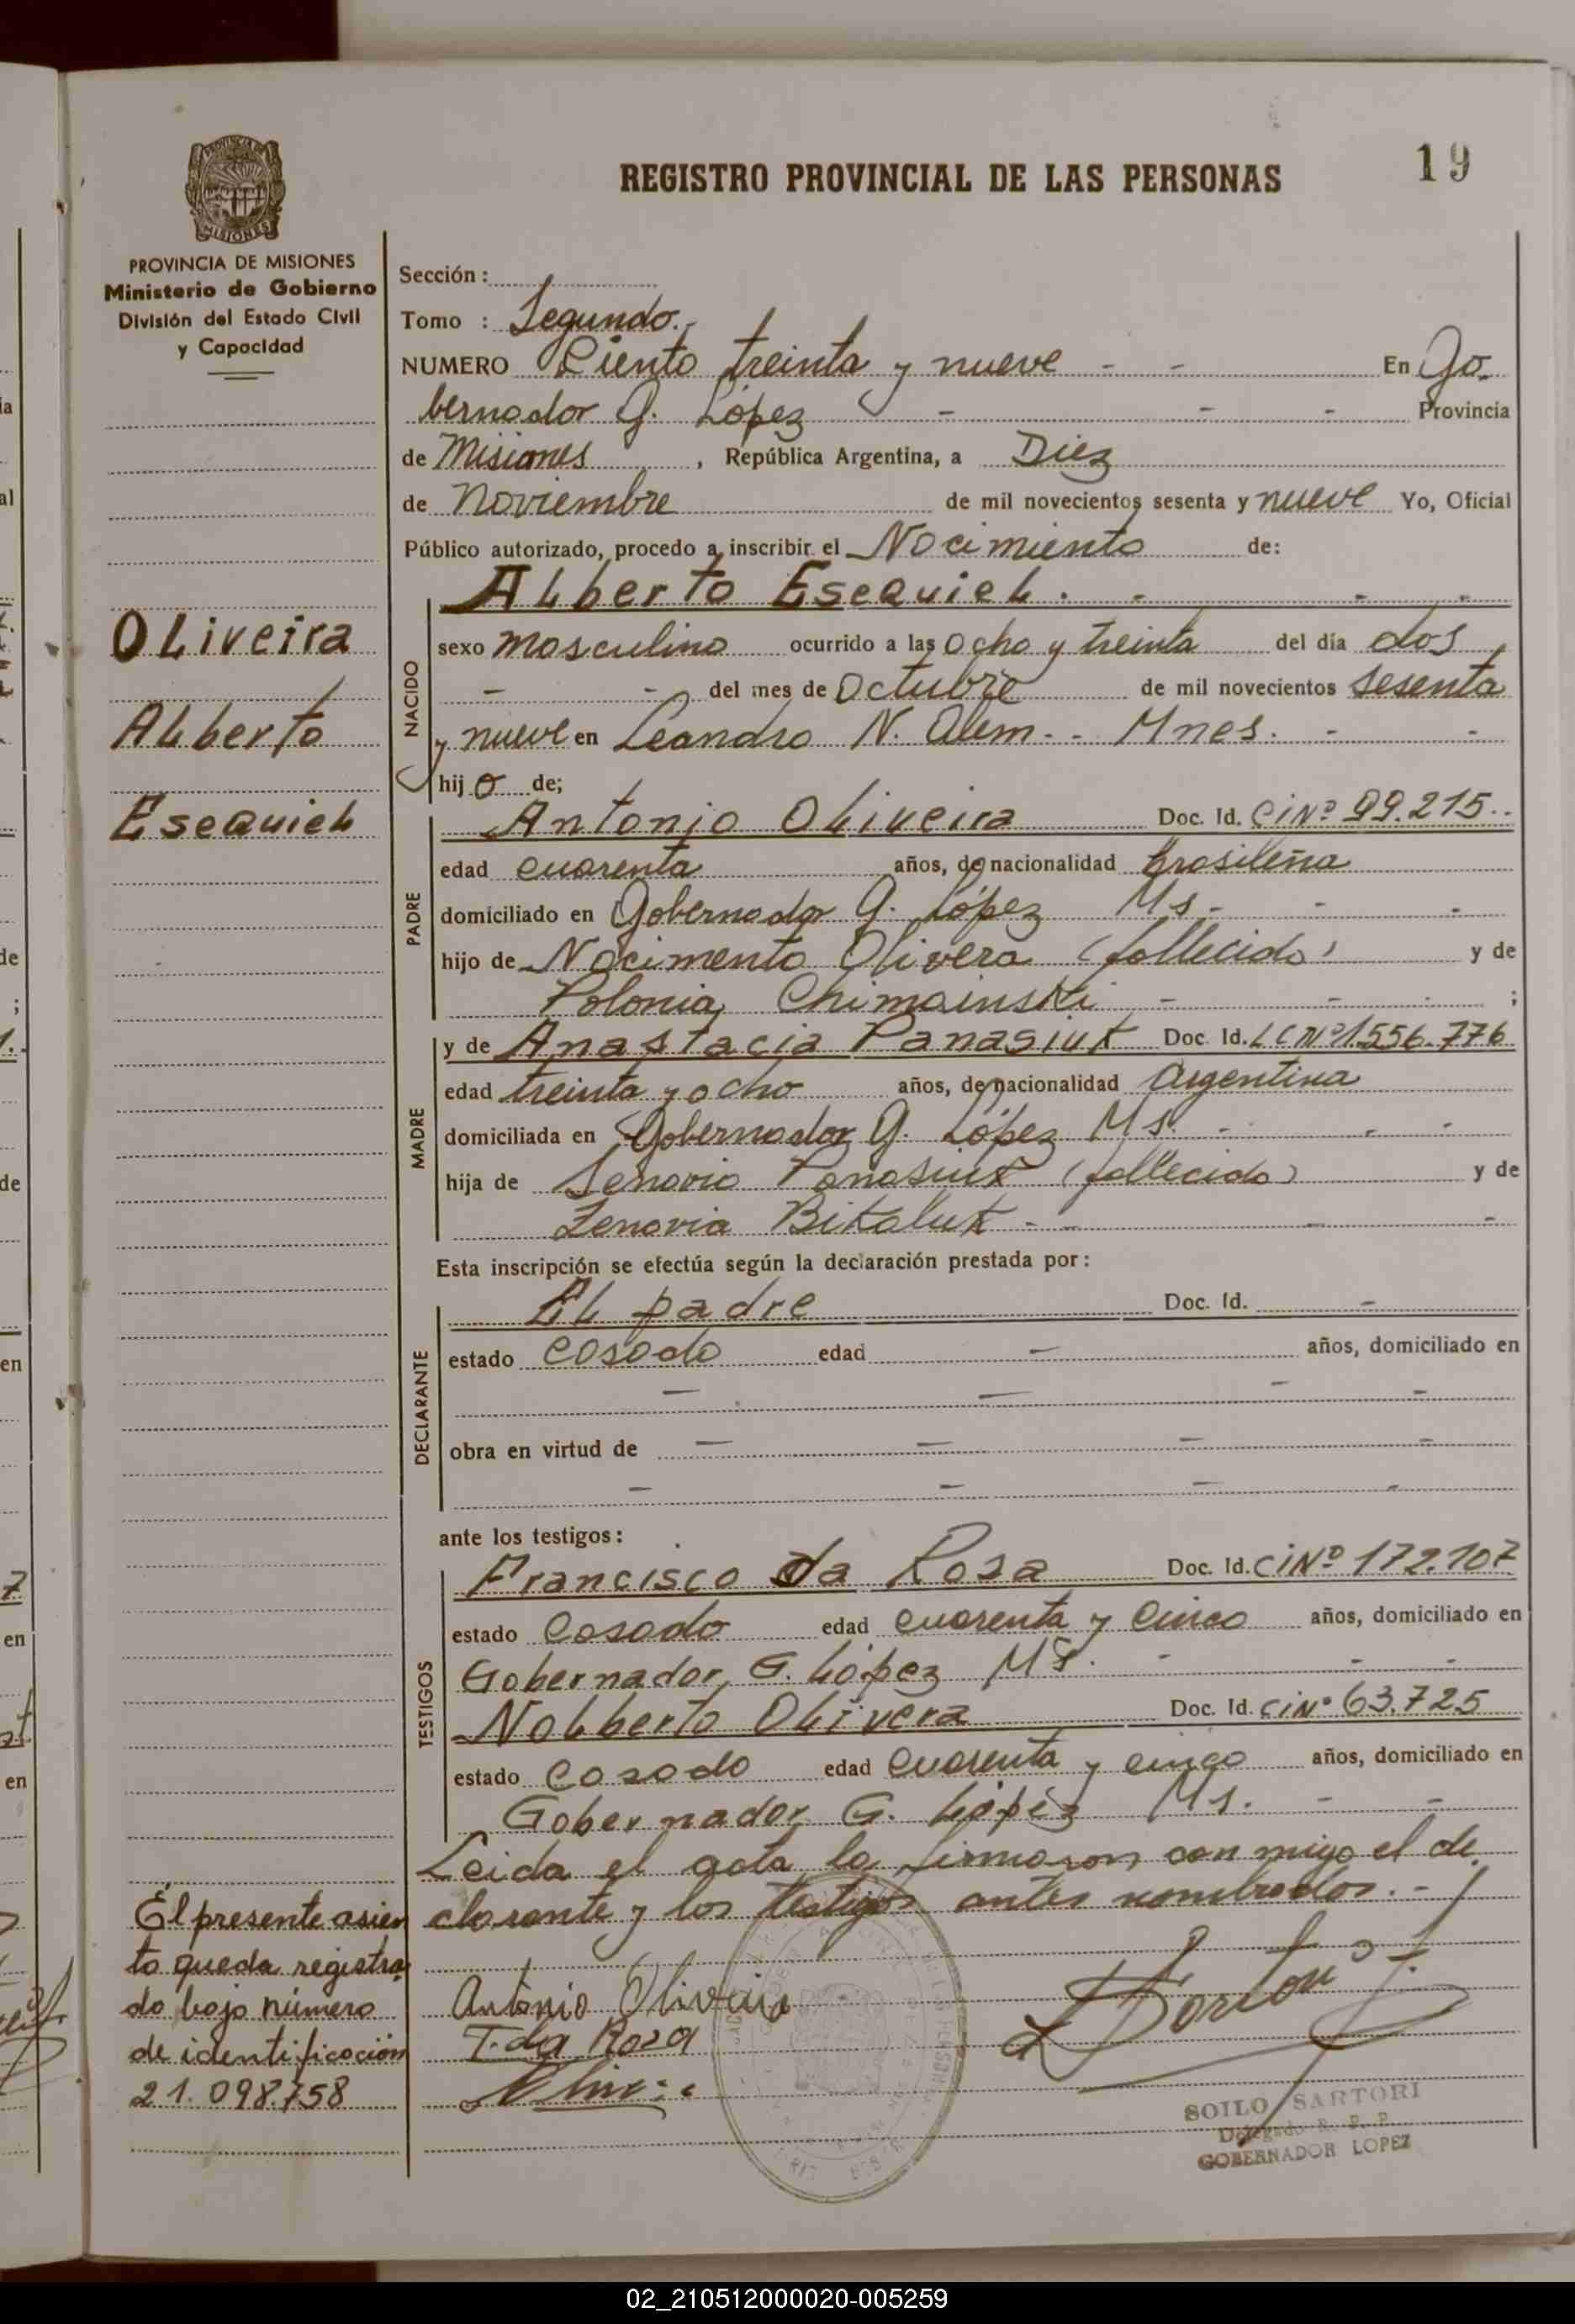 REGISTRO PROVINCIAL DE LAS PERSONAS
19
PROVINCIA DE MISIONES
Ministerio de Gobierno
División del Estado Civil
y Capacidad
Oliveira
Alberto
Esequiel
Sección :
Tomo : Segundo.-
NUMERO Ciento treinta y nueve - - En Go-
bernador G. López - - - Provincia
de Misiones , República Argentina, a Diez
de Noviembre de mil novecientos sesenta y nueve Yo, Oficial
Público autorizado, procedo a inscribir el Nacimiento de:
Alberto Esequiel . - - -
NACIDO
sexo masculino ocurrido a las ocho y treinta del día dos
- - del mes de Octubre de mil novecientos sesenta
y nueve en Leandro N. Alem - - Mnes. - -
hijo de;
PADRE
Antonio Oliveira Doc. Id. CiNº 99.215..
edad cuarenta años, de nacionalidad brasileña
domiciliado en Gobernador G. López Ms - - -
hijo de Nacimento Olivera (fallecido) y de
Polonia Chimainski - - - ;
MADRE
y de Anastacia Panasiuk Doc. Id. LC Nº 1.556.776
edad treinta y ocho años, de nacionalidad Argentina
domiciliada en Gobernador G. López Ms. - - -
hija de Panasiuk (fallecido) y de
Zenovia Bikaluk - - - -
Esta inscripción se efectúa según la declaración prestada por :
DECLARANTE
El padre Doc. Id. -
estado casado edad - años, domiciliado en
- - - -
obra en virtud de - - - -
- - - -
ante los testigos :
TESTIGOS
Francisco da Rosa Doc. Id. CiNº 172.107
estado Casado edad cuarenta y cinco años, domiciliado en
Gobernador G. López Ms. - - -
Nolberto Olivera Doc. Id. CiNº 63.725
estado Casado edad cuarenta y cinco años, domiciliado en
Gobernador G. López Ms. - -
Leida el acta la firmaron con migo el de-
clarante y los testigos antes nombrados.-
El presente asien
to queda registra
do bajo número
de identificación
21.098.758
Antonio Oliveira
F. da Rosa
SOILO SARTORI
Delegado R. P. P.
GOBERNADOR LOPEZ
02_210512000020-005259